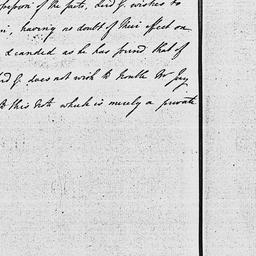 of the facts, Lord G. wishes to
having no doubt of their effect on
& candid as he has found that of
Lord G. does not wish to trouble Mr Jay
to this Note which is merely a private